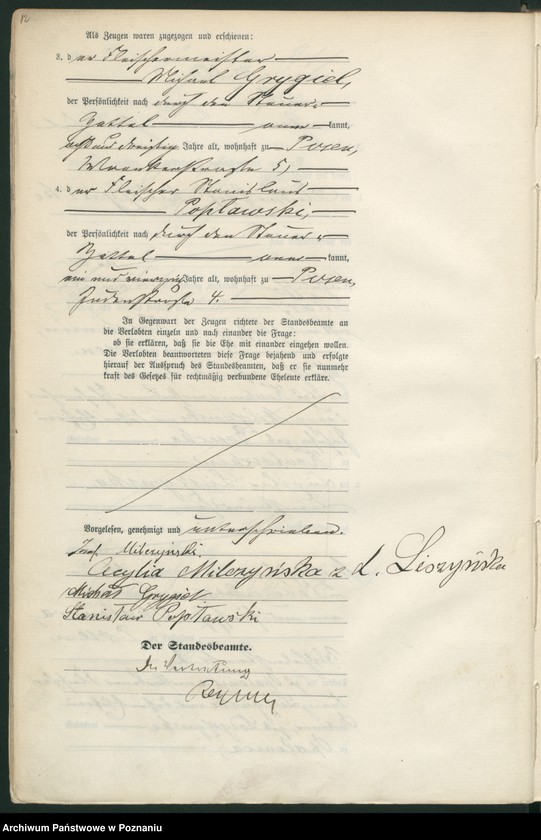 12
Als Zeugen waren zugezogen und erschienen:
3. der Fleischermeister
Michael Grygiel,
der Persönlichkeit nach durch den Steuer-
Zettel anerkannt,
acht und dreißig Jahre alt, wohnhaft zu Posen,
Wronkerstraße 5,
4. der Fleischer Stanislaus
Popławski,
der Persönlichkeit nach durch den Steuer-
Zettel anerkannt,
ein und vierzig Jahre alt, wohnhaft zu Posen,
Judenstraße 4.
In Gegenwart der Zeugen richtete der Standesbeamte an
die Verlobten einzeln und nach einander die Frage:
ob sie erklären, daß sie die Ehe mit einander eingehen wollen.
Die Verlobten beantworteten diese Frage bejahend und erfolgte
hierauf der Ausspruch des Standesbeamten, daß er sie nunmehr
kraft des Gesetzes für rechtmäßig verbundene Eheleute erkläre.
Vorgelesen, genehmigt und unterschrieben.
Milczyński.
Cecylia Milczyńska z d. Liszyńska
Michał Grygiel.
Stanisław Popławski
Der Standesbeamte.
In Vertretung
Archiwum Państwowe w Poznaniu